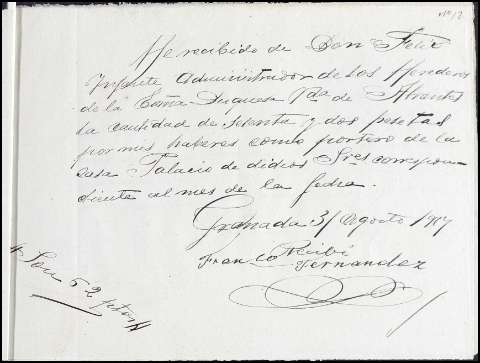 Nº 12
He recibido de Don Felix
Infante Administrador de los Herederos
de la Exma Duquesa Vda de Abrantes
la cantidad de setenta y dos pesetas
por mis haberes como portero de la
casa Palacio de dichos Sres correspon-
diente al mes de la fecha.
Granada 31 Agosto 1907
Recibí
Franco Fernandez
Son 52 ptas